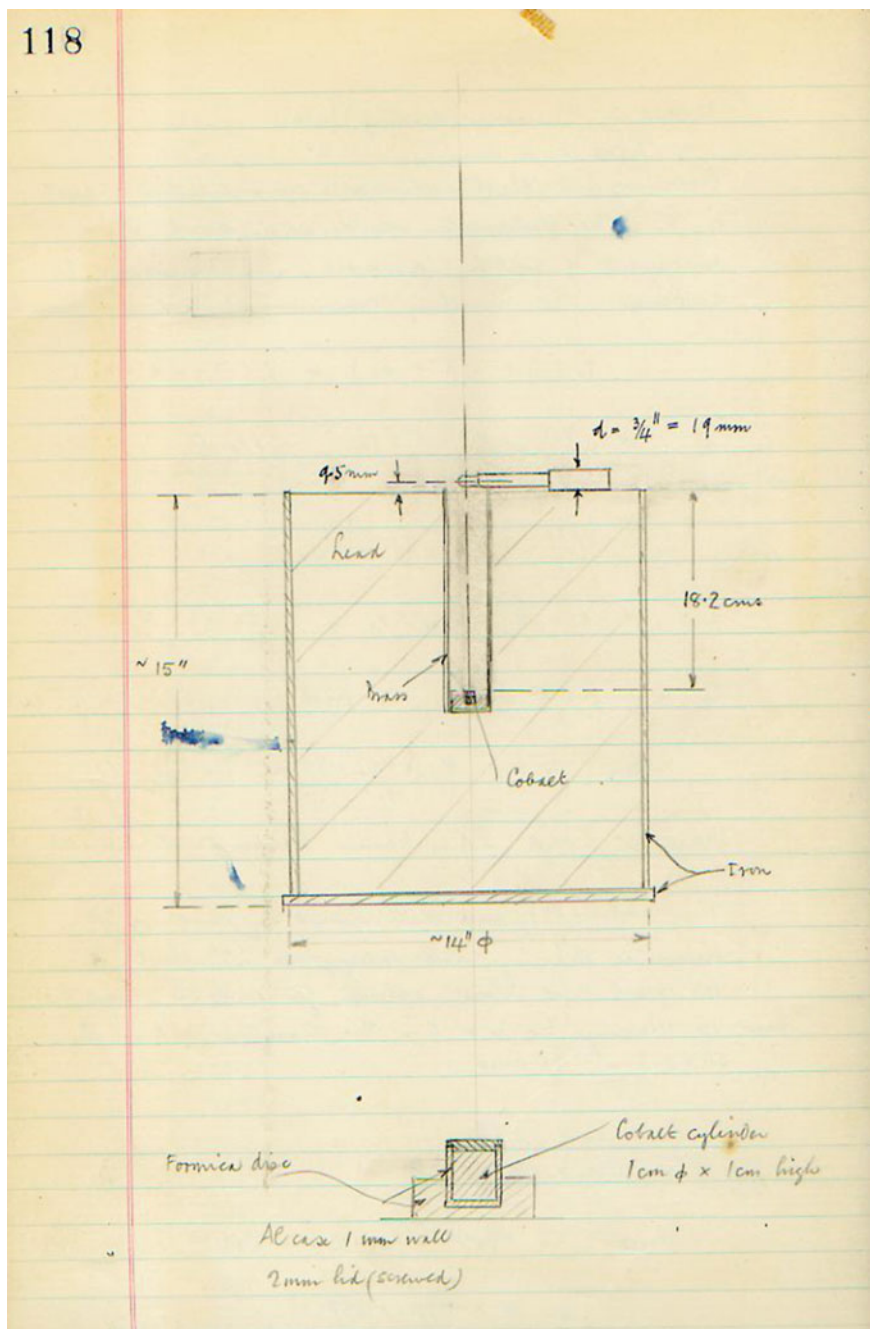 118
d = 3/4" = 19 mm
9.5 mm
Lead
18.2 cms
~ 15"
Brass
Cobalt
Iron
~14" ϕ
Cobalt cylinder
Formica disc
1 cm ϕ × 1 cm high
Al case 1 mm wall
2 mm lid (screwed)